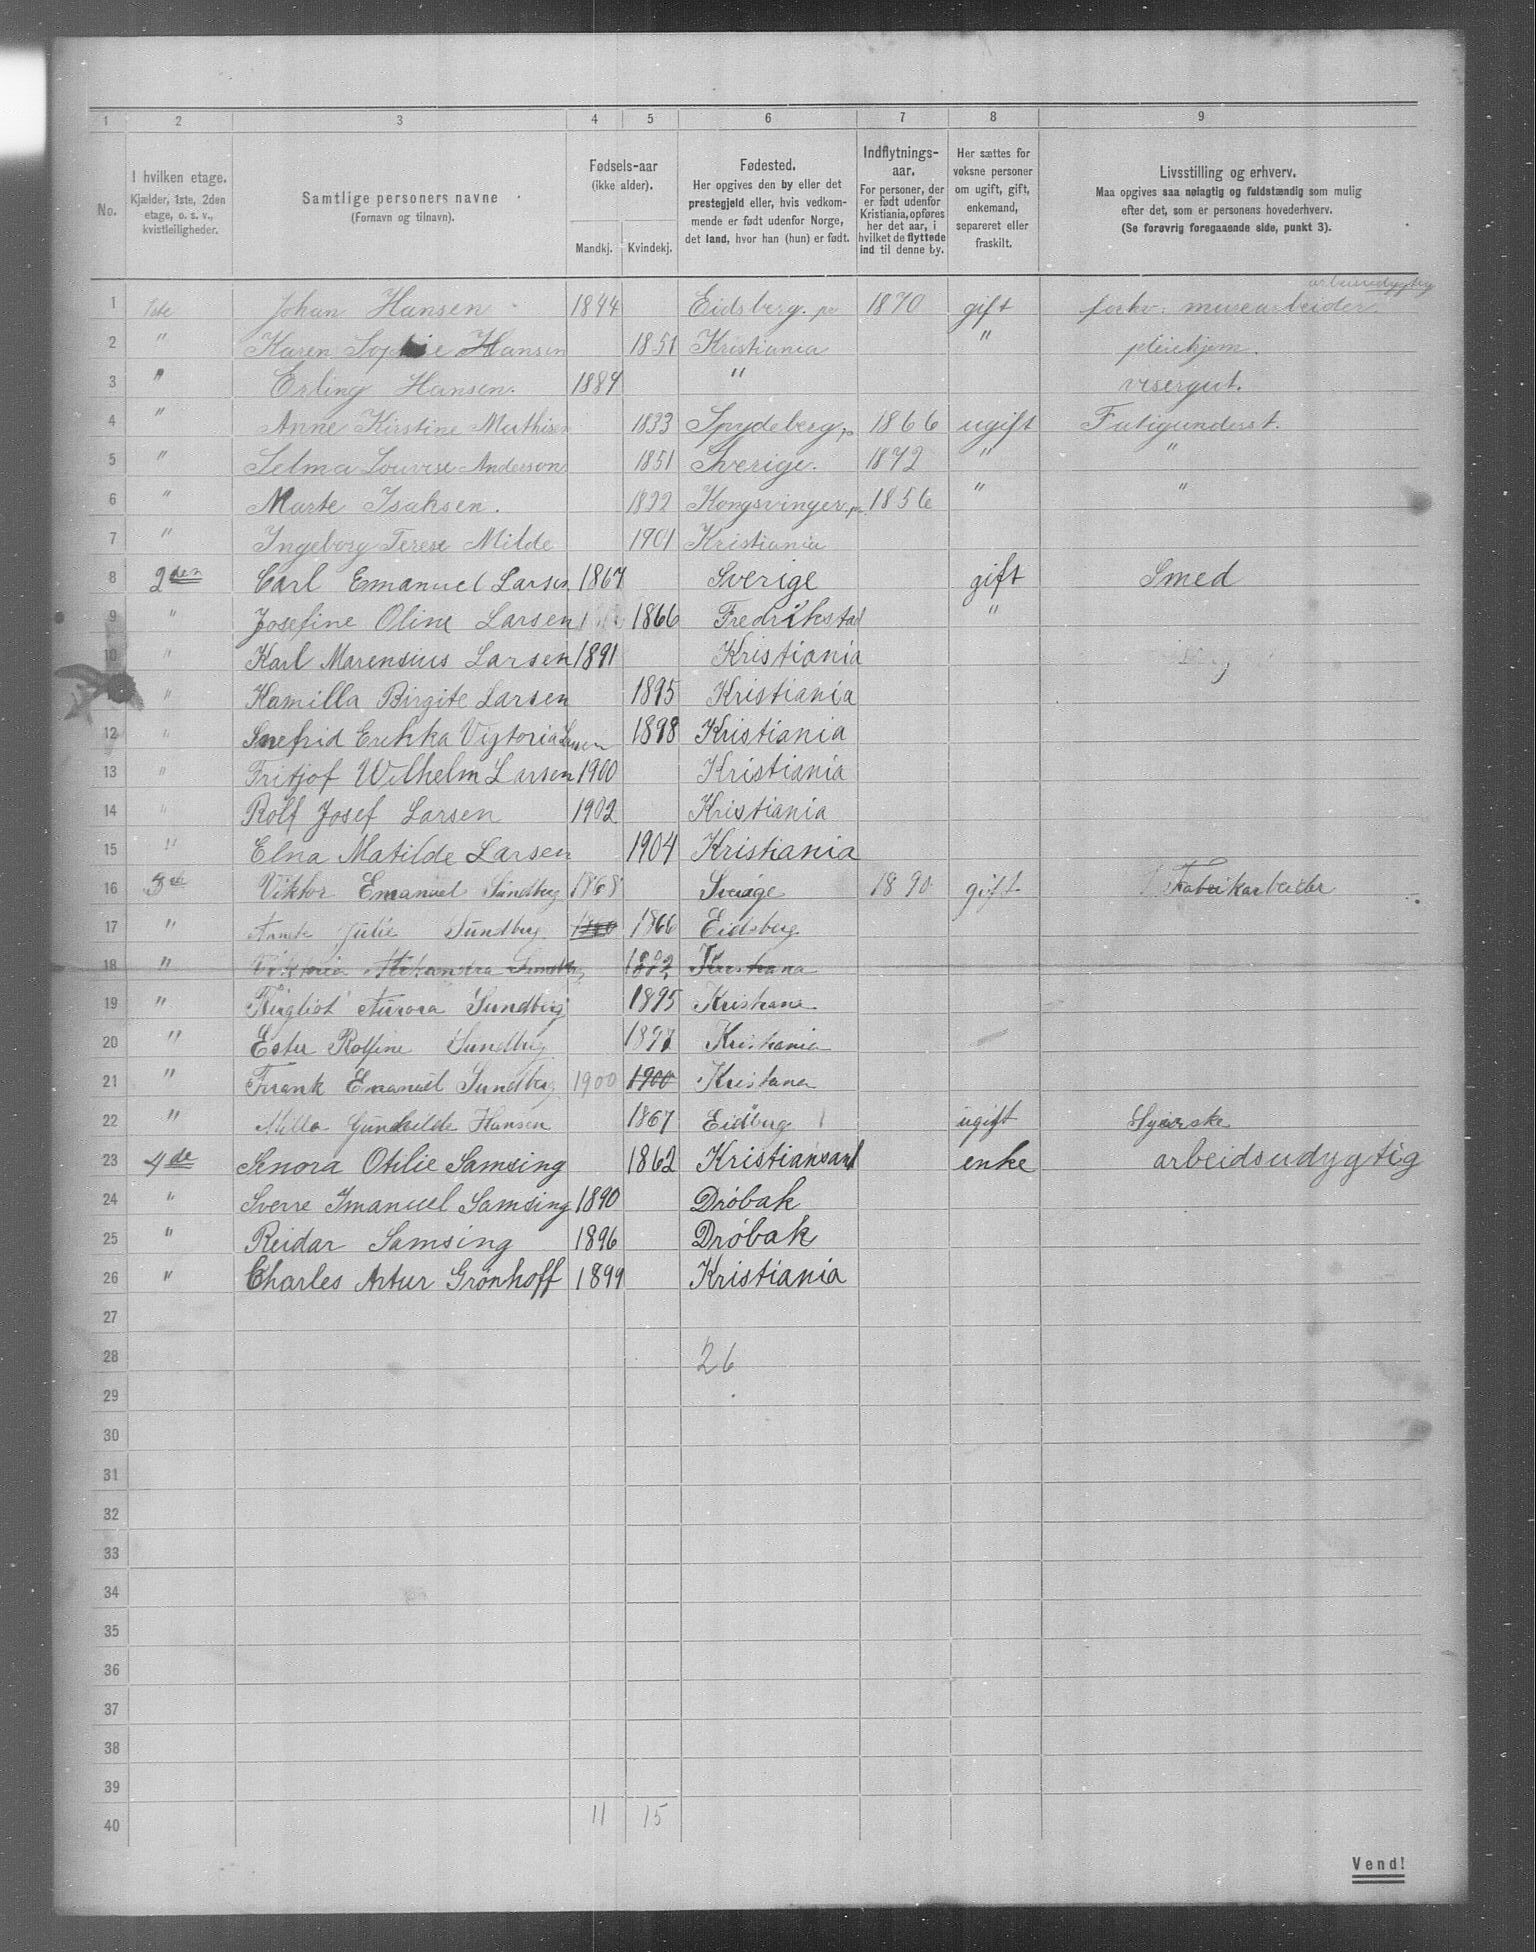 1 2 3 4 5 6 7 8 9
No.
I hvilken etage.
Kjælder, 1ste, 2den
etage, o. s. v.,
kvistleiligheder.
Samtlige personers navne
(Fornavn og tilnavn).
Fødsels-aar
(ikke alder).
Mandkj. Kvindekj.
Fødested.
Her opgives den by eller det
prestegjeld eller, hvis vedkom-
mende er født udenfor Norge,
det land, hvor han (hun) er født.
Indflytnings-
aar.
For personer, der
er født udenfor
Kristiania, opføres
her det aar, i
hvilket de flyttede
ind til denne by.
Her sættes for
voksne personer
om ugift, gift,
enkemand,
separeret eller
fraskilt.
Livsstilling og erhverv.
Maa opgives saa nøiagtig og fuldstændig som mulig
efter det, som er personens hovederhverv.
(Se forøvrig foregaaende side, punkt 3).
arbeidsudygtig
1 1ste Johan Hansen 1844 Eidsberg. pr 1870 gift forhv. murearbeider.
2 " Karen Sophie Hansen 1851 Kristiania " pleiehjem.
3 " Erling Hansen. 1884 " visergut.
4 " Anne Kirstine Mathisen 1833 Spydeberg p 1866 ugift Fatigunderst.
5 " Selma Lovise Anderson 1851 Sverige. 1872 " "
6 " Marte Isaksen. 1822 Kongsvinger p. 1856 " "
7 " Ingeborg Terese Milde 1901 Kristiania
8 2den Carl Emanuel Larsen 1867 Sverige gift Smed
9 " Josefine Oline Larsen 1866 Fredrikstad "
10 " Karl Marensius Larsen 1891 Kristiania
" Kamilla Birgite Larsen 1895 Kristiania
12 " Snefrid Erikka Vigtoria Larsen 1898 Kristiania
13 " Fritjof Wilhelm Larsen 1900 Kristiania
14 " Rolf Josef Larsen 1902 Kristiania
15 " Elna Matilde Larsen 1904 Kristiania
16 3de Viktor Emanuel Sundberg 1868 Sverige 1890 gift Fabrikarbeider
17 " Julie Sundberg 1866 Eidsberg
18 " Viktoria Sundberg Kristiana
19 " Aurora Sundberg 1895 Kristiana
20 " Ester Rolfine Sundberg 1897 Kristiania
21 " Frank Emanuel Sundberg 1900 1900 Kristiana
22 " Milla Gunhilde Hansen 1867 Eidsberg ugift Syerske
23 4de Senora Otilie Samsing 1862 Kristiansand enke arbeidsudygtig
24 " Sverre Imanuel Samsing 1890 Drøbak
25 " Reidar Samsing 1896 Drøbak
26 " Charles Artur Grønhoff 1899 Kristiania
27
28 26
29
30
31
32
33
34
35
36
37
38
39
40 11 15
Vend!